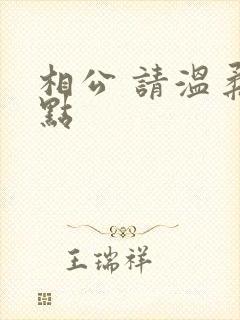 相公 請溫柔
點
王瑞祥